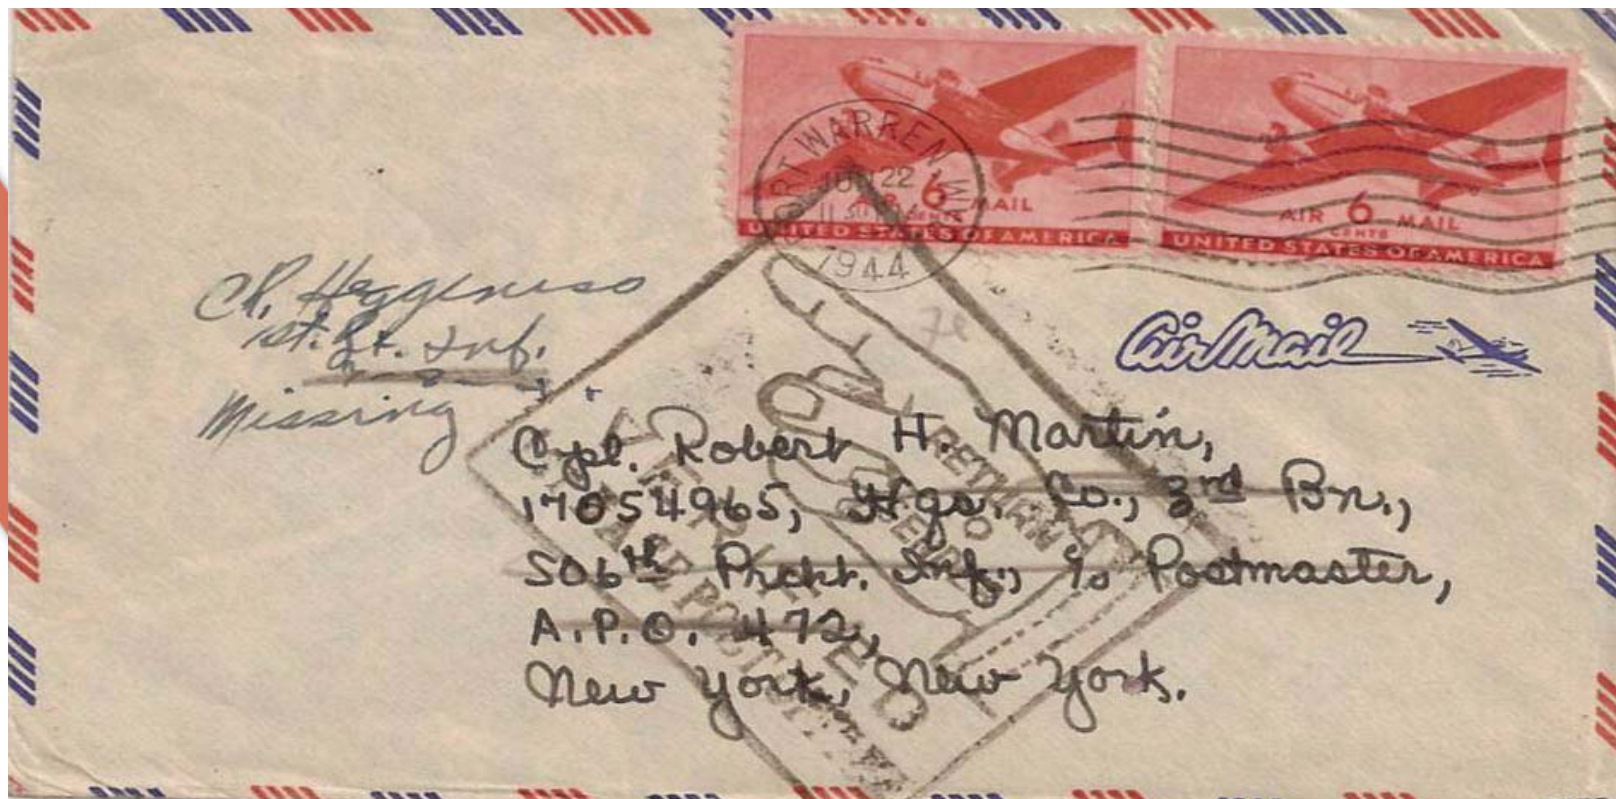 FORT WARREN, W
JUN 22
1944
AIR 6 MAIL
CENTS
UNITED STATES OF AMERICA
AIR 6 MAIL
CENTS
UNITED STATES OF AMERICA
Air Mail
1st. Lt. Inf.
Missing
RETURN
TO
SENDER
VERIFIED
Cpl. Robert H. Martin,
17054965, Hqs. Co., 3rd Bn.,
506th Prcht. Inf., c/o Postmaster,
A.P.O. 472,
New York, New York.